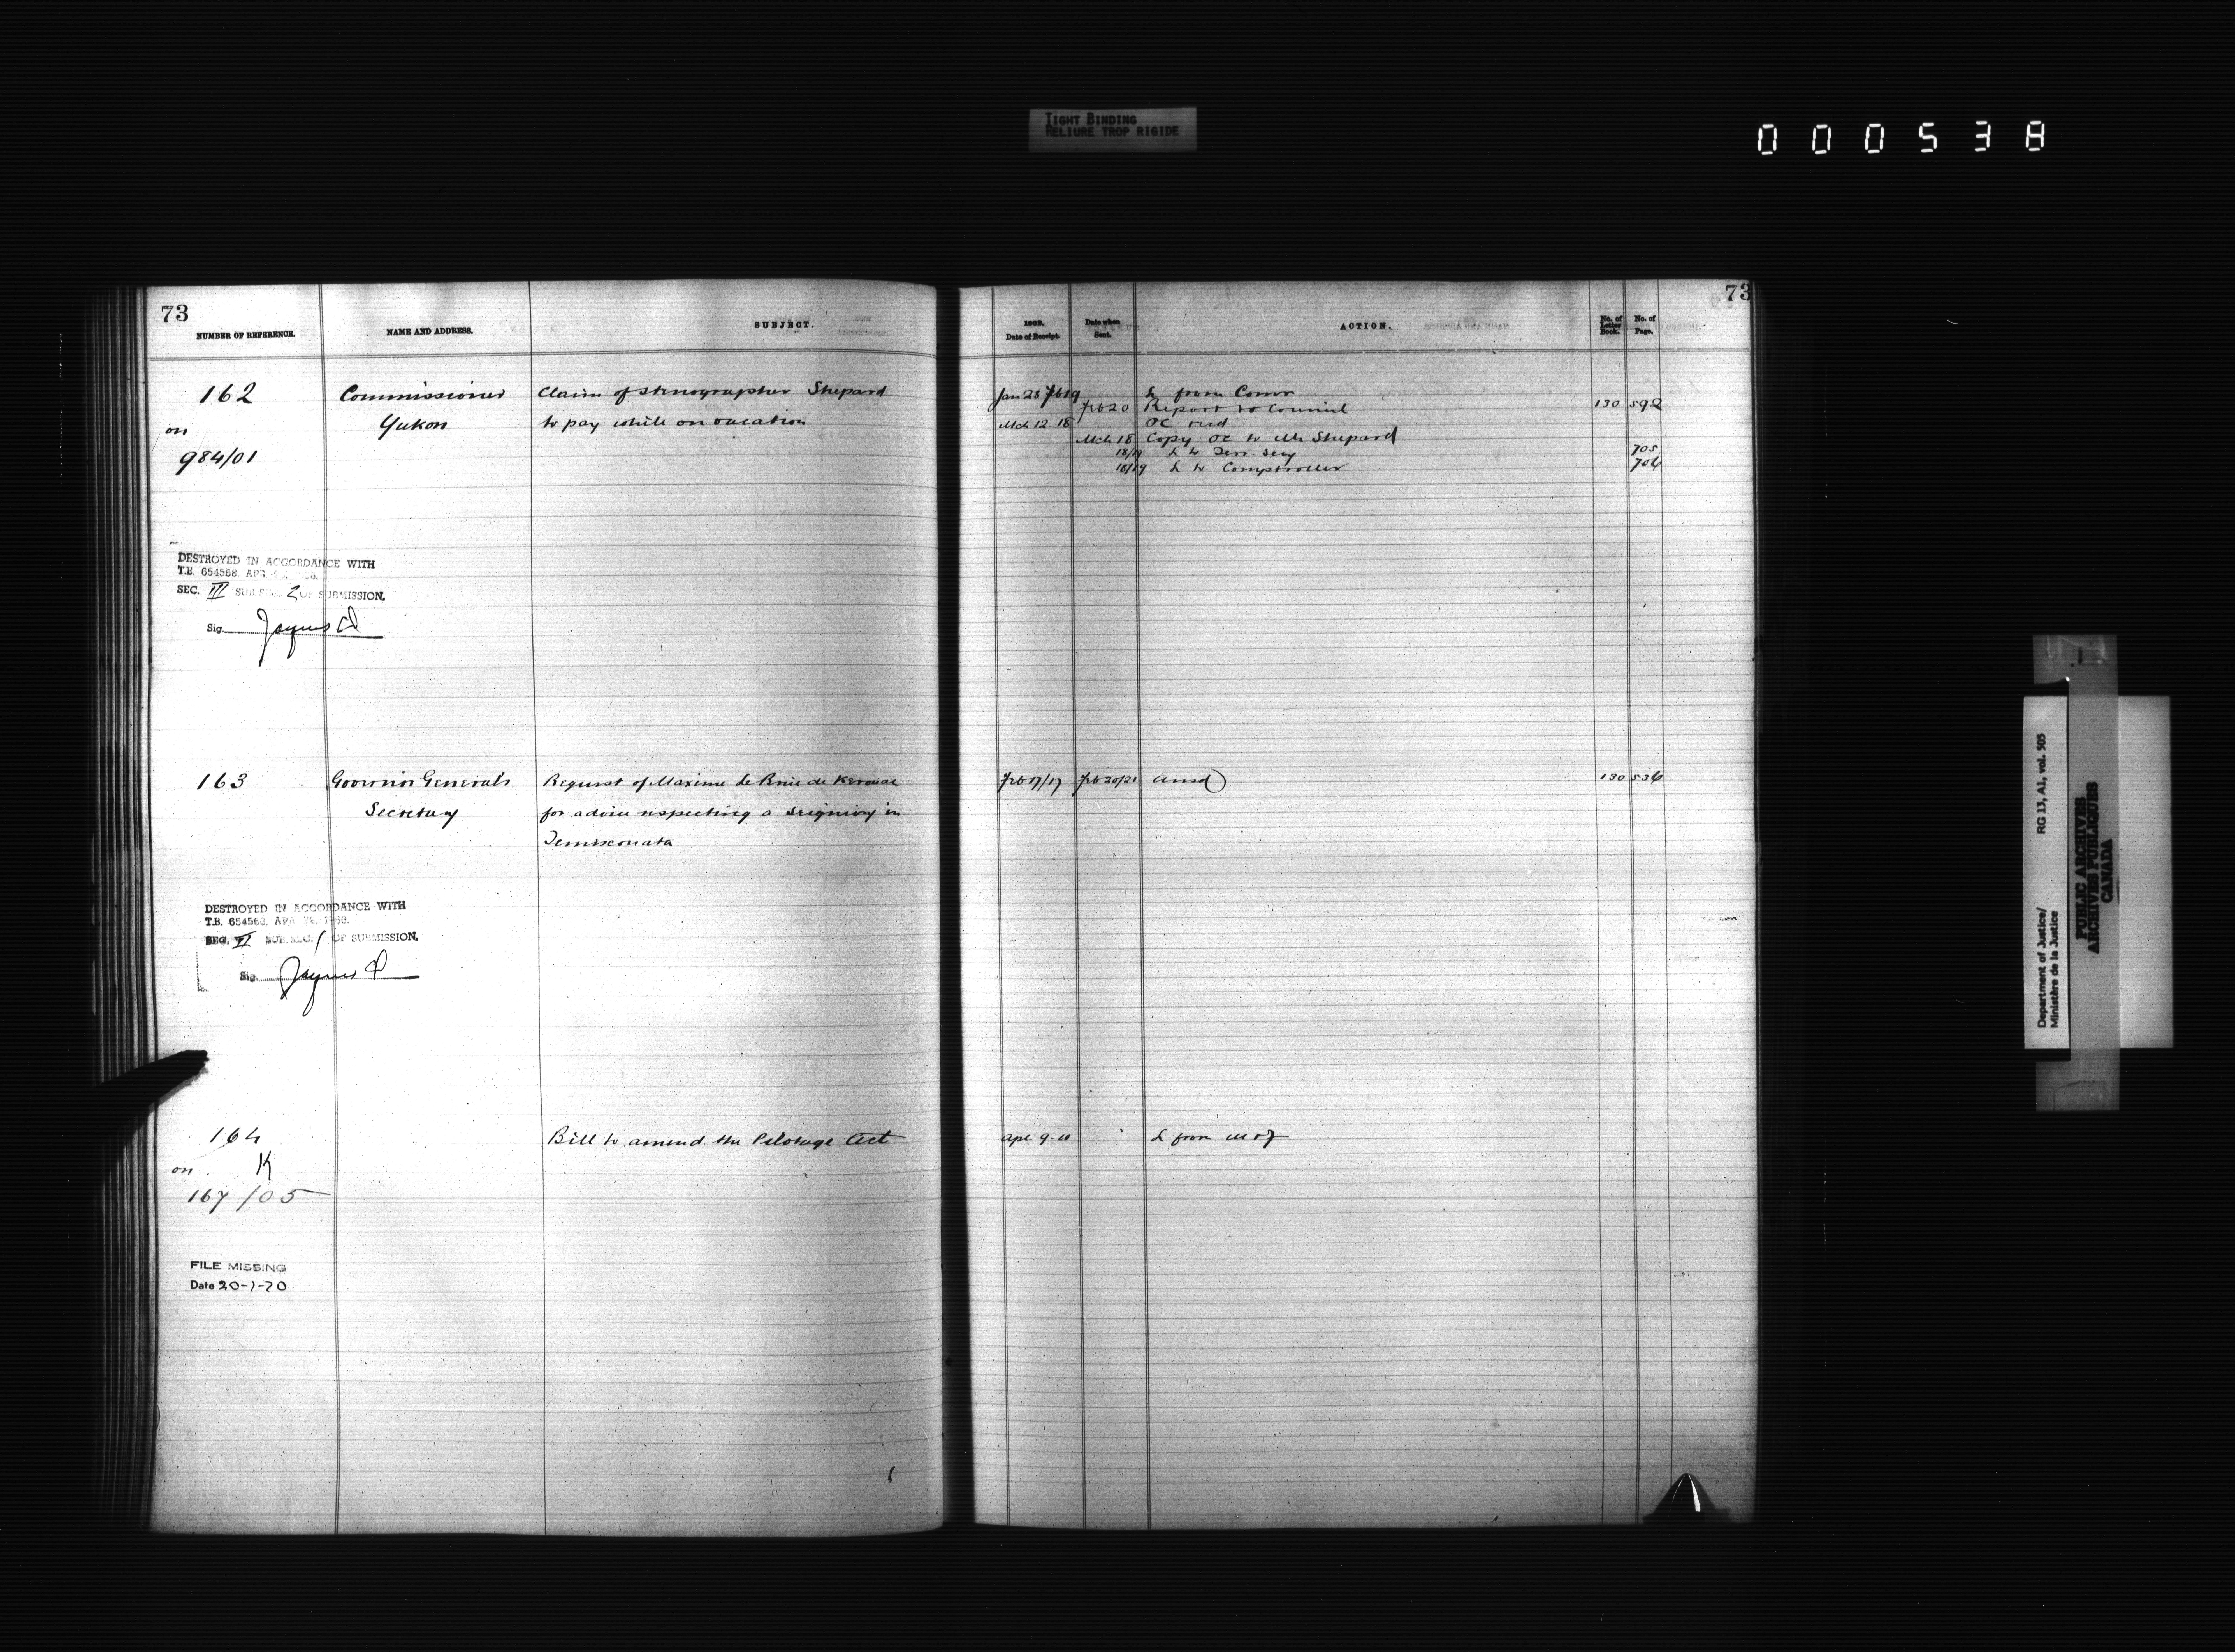 TIGHT BINDING
RELIURE TROP RIGIDE
000538
73
NUMBER OF REFERENCE.
NAME AND ADDRESS.
SUBJECT.
162
on
984/01
Commissioner
Yukon
Claim of Stenographer Shepard
to pay while on vacation
DESTROYED IN ACCORDANCE WITH
T.B. 654568, APR
SEC. III SUB.SEC. 2 OF SUBMISSION.
Sig.
163
Governor General's
Secretary
Request of Maxime de Kerouac
for advice respecting a Seigniory in
Temisconata
DESTROYED IN ACCORDANCE WITH
T.B. 654568, APR 28, 1960.
SEC. VI SUB.SEC. 1 OF SUBMISSION.
Sig.
164
on K
167/05
Bill to amend the Pilotage Act
FILE MISSING
Date 20-1-70
73
Date of Receipt.
Date when
Sent.
ACTION.
No. of
Letter
Book.
No. of
Page.
Jan 28 Feb 19 L from Comr
Feb 20 Report to Council 130 592
Mch 12 18 OC recd
Mch 18 Copy OC to Mr Shepard
18/19 L to Terr. Secy 705
18/19 L to Comptroller 706
Feb 17/17 Feb 20/21 Ansd 130 536
Apl 9 L from M of J
Department of Justice/
Ministère de la Justice
RG 13, A1, vol. 505
PUBLIC ARCHIVES
ARCHIVES PUBLIQUES
CANADA